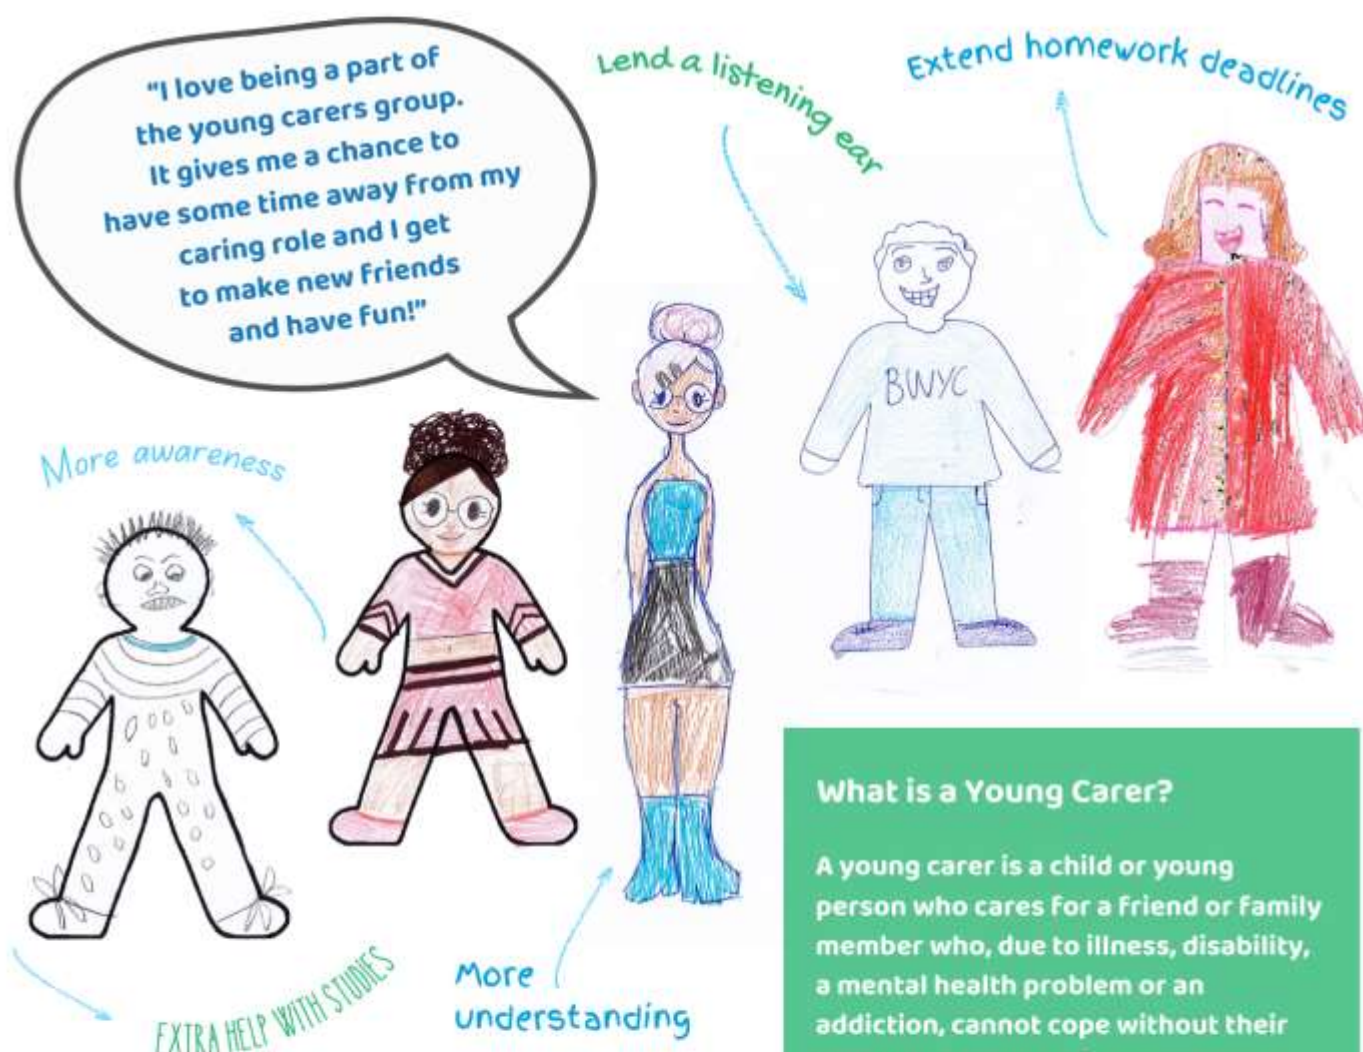 "I love being a part of
the young carers group.
It gives me a chance to
have some time away from my
caring role and I get
to make new friends
and have fun!"
Lend a listening ear
Extend homework deadlines
BWYC
More awareness
EXTRA HELP WITH STUDIES
More
understanding
What is a Young Carer?
A young carer is a child or young
person who cares for a friend or family
member who, due to illness, disability,
a mental health problem or an
addiction, cannot cope without their